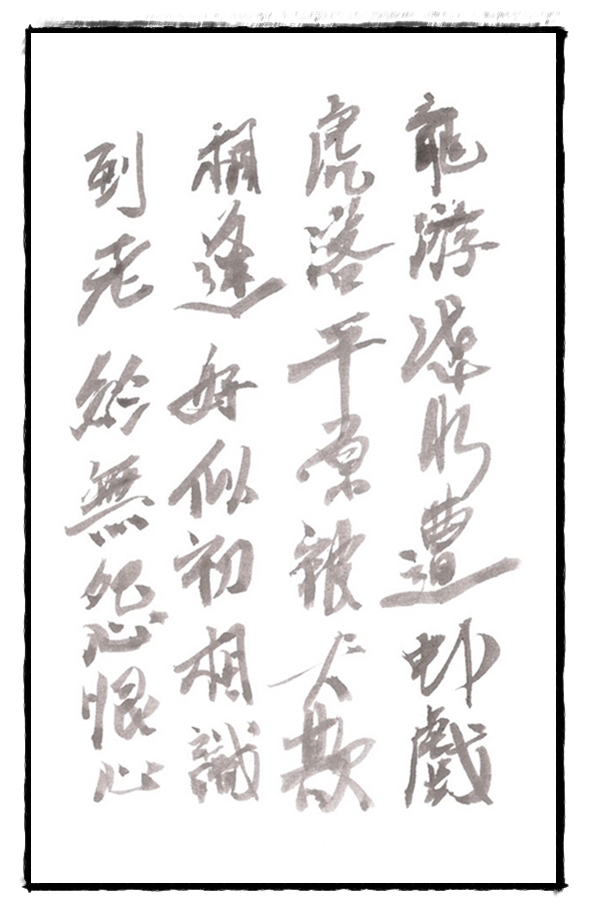 龍游淺水遭蝦戲
虎落平原被犬欺
相逢好似初相識
到老終無怨恨心